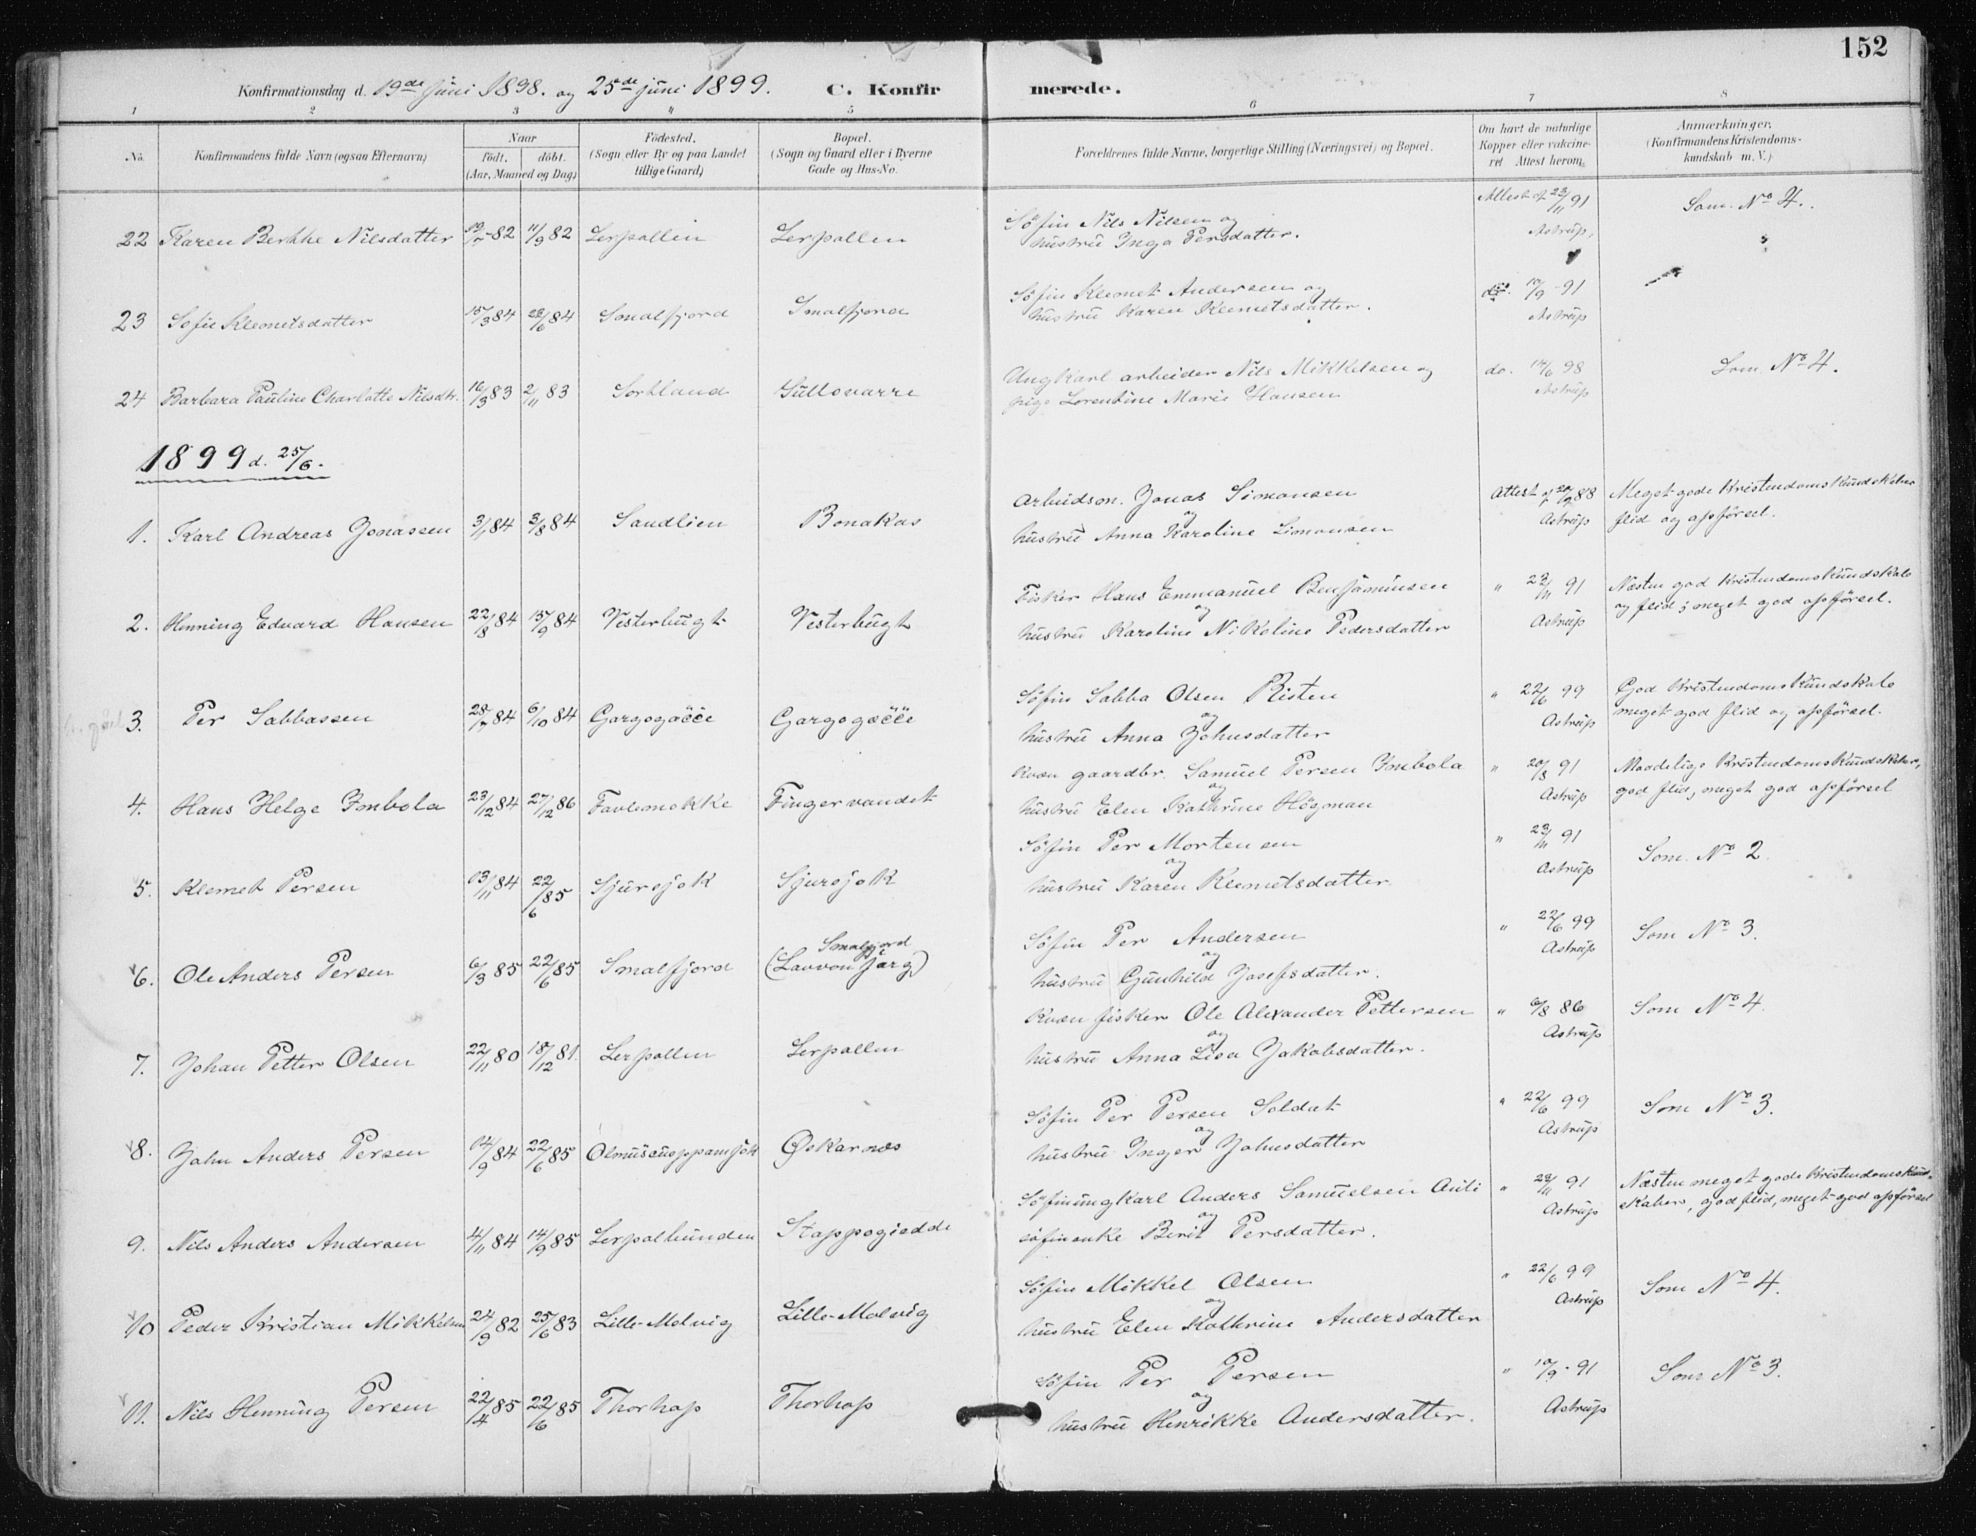 152
Konfirmationsdag d. 19de juni 1898. og 25de juni 1899. C. Konfirmerede.
1 2 3 4 5 6 7 8
No.
Konfirmandens fulde Navn (ogsaa Efternavn)
Naar
født. døbt.
(Aar, Maaned og Dag)
Fødested.
(Sogn eller By og paa Landet
tillige Gaard)
Bopæl.
(Sogn og Gaard eller i Byerne
Gade og Hus-No.
Forældrenes fulde Navne, borgerlige Stilling (Næringsvei) og Bopæl.
Om havt de naturlige
Kopper eller vaccine-
ret Attest herom.
Anmærkninger.
(Konfirmandens Kristendoms-
kundskab m. V.)
22 Karen Berthe Nilsdatter 82 11/9 82 Lerpollen Lerpollen
Söfin Nils Nilsen og
hustru Inga Persdatter.
Attest af 23/11 91
Astrup.
Som No 4.
23 Sofie Klemetsdatter 15/3 84 22/6 84 Smalfjord Smalfjord
Söfin Klemet Andersen og
hustru Karen Klemetsdatter.
do. 10/9 91
Astrup
24 Barbara Pauline Charlotte Nilsdtr. 16/3 83 2/11 83 Sortland Sullovarre
Ungkarl arbeider Nils Mikkelsen og
pige Lorentine Marie Hansen
do. 14/6 98
Astrup
Som No 4.
1899 d. 25/6.
1. Karl Andreas Jonassen 3/1 84 3/8 84 Sandlien Bonakas
Arbeidsm. Jonas Simonsen
og
hustru Anna Karoline Simonsen
Attest af 88
Astrup
Meget gode Kristendomskundskaber
flid og opförsel.
2. Henning Edvard Hansen 22/8 84 15/9 84 Vesterbugt Vesterbugt
Fisker Hans Emmanuel Benjaminsen
og
hustru Karoline Nikoline Pedersdatter
" 23/11 91
Astrup
Næsten god Kristendomskundskab
og flid; meget god opförsel.
3. Per Sabbassen 28/7 84 6/10 84 Gargogæčče Gargogæčče
Söfin Sabba Olsen Risten
og
hustru Anna Johnsdatter
" 22/6 99
Astrup
God Kristendomskundskab
meget god flid og opförsel.
4. Hans Helge Imbola 23/12 84 27/12 86 Favlemokke Fingervandet
Kvæn gaardbr. Samuel Persen Imbola
og
hustru Elen Kathrine Högman
" 20/8 91
Astrup
Maadelige Kristendomskundskaber,
god flid, meget god opförsel
5. Klemet Persen 13/11 84 22/6 85 Sjursjok Sjursjok
Söfin Per Mortensen
og
hustru Karen Klemetsdatter
" 23/11 91
Astrup
Som No 2.
6. Ole Anders Persen 6/3 85 22/6 85 Smalfjord Smalfjord
(Lavvonjarg)
Söfin Per Andersen
og
hustru Gunhild Josefsdatter.
" 22/6 99
Astrup
Som No 3.
7. Johan Petter Olsen 22/11 80 18/12 81. Lerpollen Lerpollen
Kvæn fisker Ole Alexander Pettersen
og
hustru Anna Lisa Jakobsdatter.
" 6/8 86
Astrup
Som No 4.
8. John Anders Persen 14/9 84 22/6 85 Olmuscuoppamjok Öskarnæs
Söfin Per Persen Soldat
og
hustru Inger Johnsdatter
" 22/6 99
Astrup
Som No 3.
9. Nils Anders Andersen 4/11 84 14/9 85 Lerpolbunden Stappogiedde
Söfinungkarl Anders Samuelsen Auti
og
söfinenke Berit Persdatter.
" 23/11 91
Astrup
Næsten meget gode Kristendomskund-
skaber, god flid, meget god opförsel
10 Peder Kristian Mikkelsen 24/9 82 25/6 83 Lille-Molvig Lille-Molvig
Söfin Mikkel Olsen
og
hustru Elen Kathrine Andersdatter
" 22/6 99
Astrup
Som No 4.
11. Nils Henning Persen 22/4 85 22/6 85 Thorhop Thorhop
Söfin Per Persen
og
hustru Henrikke Andersdatter.
" 10/9 91
Astrup
Som No 3.